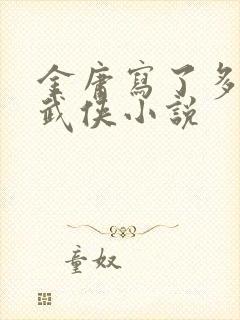 金庸寫了多
武俠小說
童奴